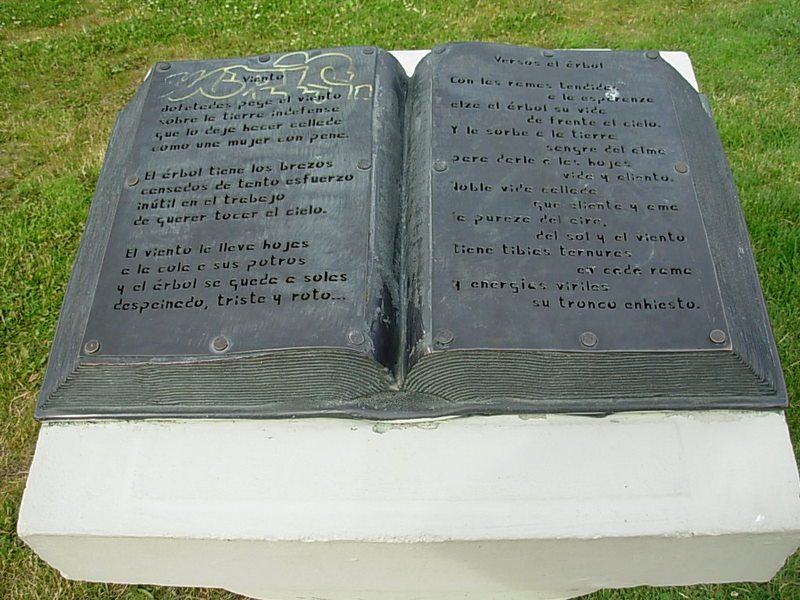 Viento
Bofetadas pega el viento
sobre la tierra indefensa
que lo deja hacer callada
como una mujer con pena.
El árbol tiene los brazos
cansados de tanto esfuerzo
inútil en el trabajo
de querer tocar el cielo.
El viento le lleva hojas
a la cola a sus potros
y el árbol se queda a solas
despeinado, triste y roto...
Versos al árbol
Con las ramas tendidas
a la esperanza
alza el árbol su vida
de frente al cielo.
Y le sorbe a la tierra
sangre del alma
para darle a las hojas
vida y aliento.
Noble vida callada
que alienta y ama
la pureza del aire,
del sol y el viento
tiene tibias ternuras
en cada rama
y energías viriles
su tronco enhiesto.